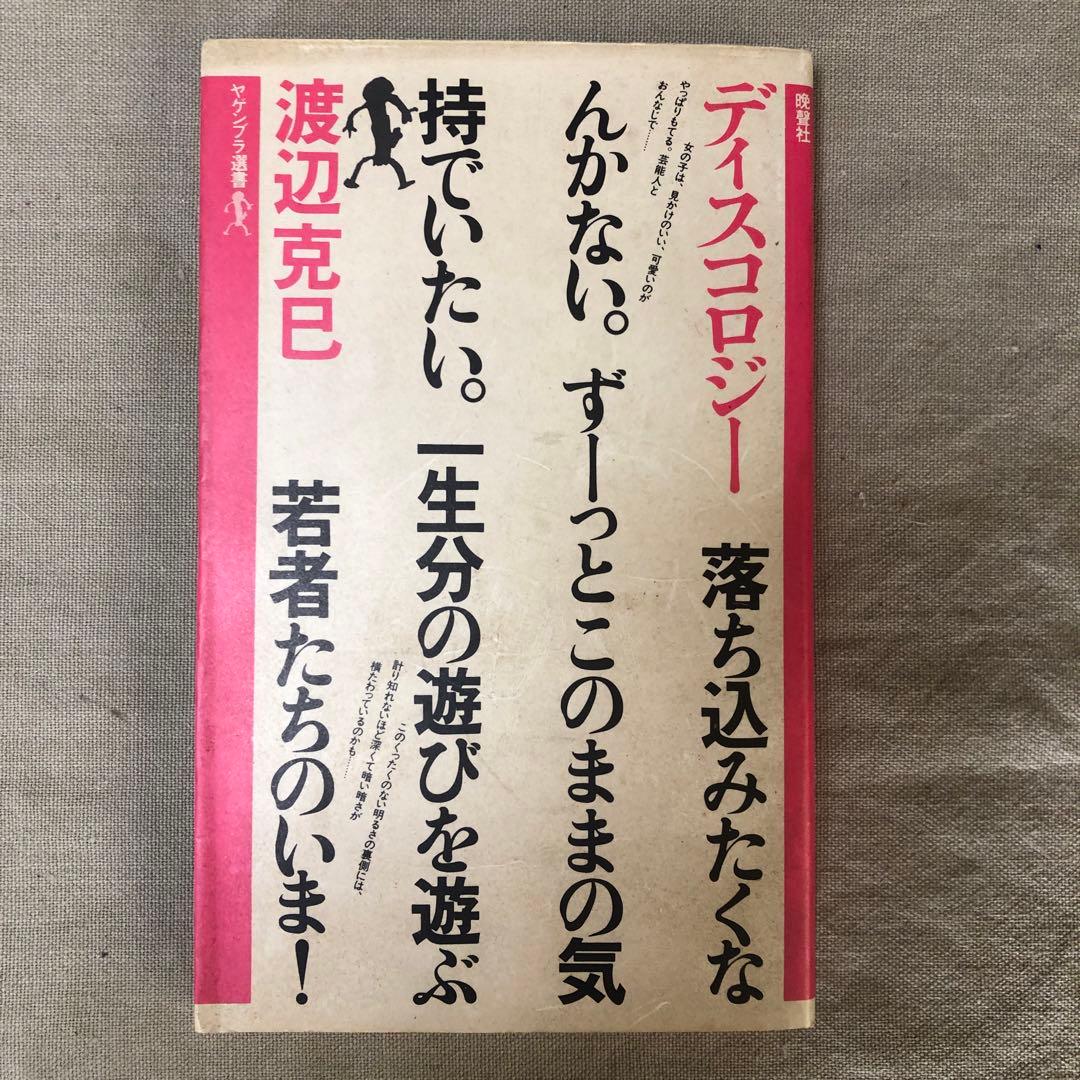 晩聲社
ディスコロジー 落ち込みたくな
女の子は、見かけのいい、可愛いのが
やっぱりもてる。芸能人と
おんなじで……
んかない。ずーっとこのままの気
持でいたい。一生分の遊びを遊ぶ
このくったくのない明るさの裏側には、
計り知れないほど深くて暗い暗さが
横たわっているのかも……
渡辺克巳 若者たちのいま！
ヤゲンブラ選書